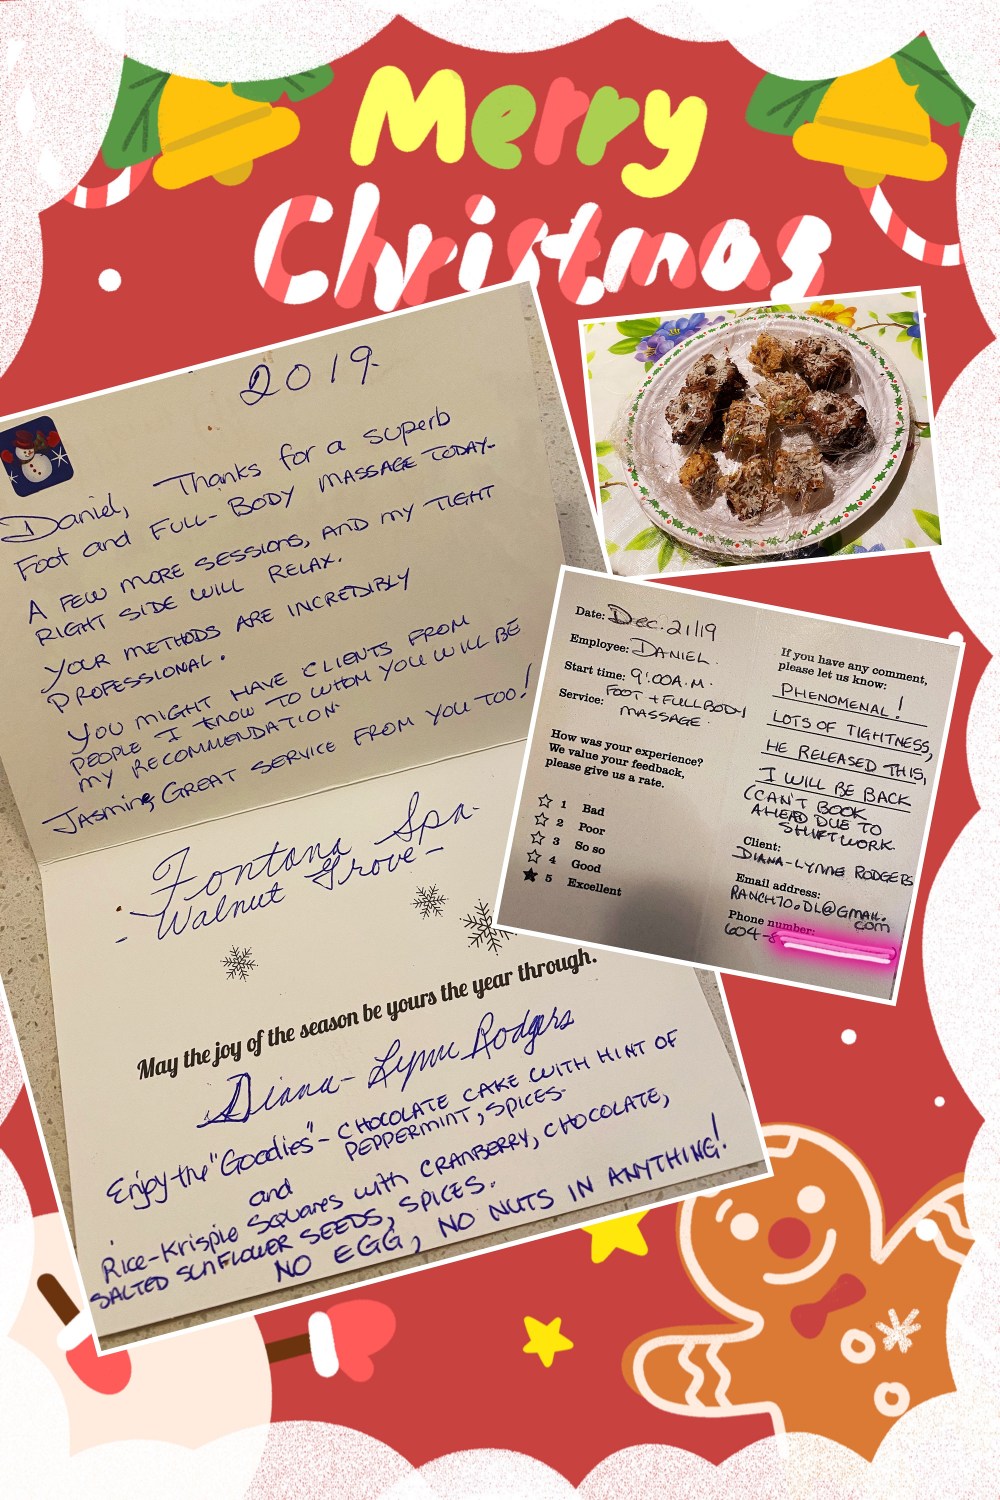 Merry
Christmas
2019.
Daniel, Thanks for a superb
Foot and FULL-BODY MASSAGE TODAY-
A FEW MORE SESSIONS, AND MY TIGHT
RIGHT SIDE WILL RELAX.
YOUR METHODS ARE INCREDIBLY
PROFESSIONAL.
YOU MIGHT HAVE CLIENTS FROM
PEOPLE I KNOW TO WHOM YOU WILL BE
MY RECOMMENDATION.
Jasmine, GREAT SERVICE FROM YOU TOO!
Fontana Spa-
- Walnut Grove-
May the joy of the season be yours the year through.
Diana-Lynne Rodgers
Enjoy the "Goodies" - CHOCOLATE CAKE WITH HINT OF
PEPPERMINT, SPICES-
and
Rice-Krispie Squares with CRANBERRY, CHOCOLATE,
SALTED SUNFLOWER SEEDS, SPICES.
NO EGG, NO NUTS IN ANYTHING!
Date: Dec. 21/19
Employee: DANIEL.
Start time: 9:00A.M.
Service: FOOT + FULLBODY
MASSAGE.
How was your experience?
We value your feedback,
please give us a rate.
1 Bad
2 Poor
3 So so
4 Good
5 Excellent
If you have any comment,
please let us know:
PHENOMENAL!
LOTS OF TIGHTNESS,
HE RELEASED THIS,
I WILL BE BACK
(CAN'T BOOK
AHEAD DUE TO
SHIFTWORK.
Client:
DIANA-LYNNE RODGERS
Email address:
RANCH70.DL@GMAIL.
com
Phone number:
604-8